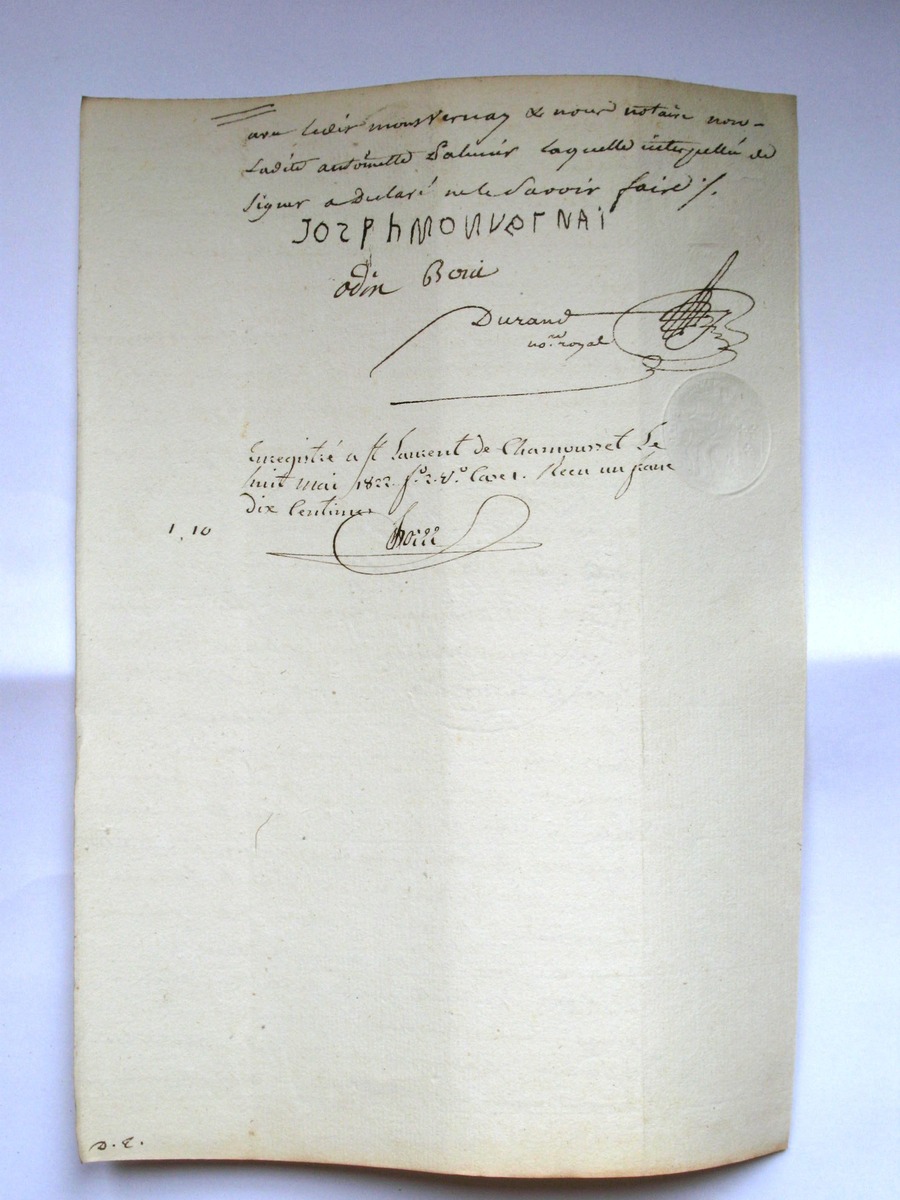 avec ledit monsvernay & nous notaire non
ladite antoinette laquelle interpellée de
signer a déclaré ne le savoir faire ⁒
JOSPhMONVERNAi
odin
Durand
no.re royal
Enregistré a St Laurent de Chamousset Le
huit Mai 1822. f.o 2. V.o Case 1. Recu un franc
dix Centimes
1,10
D. E.